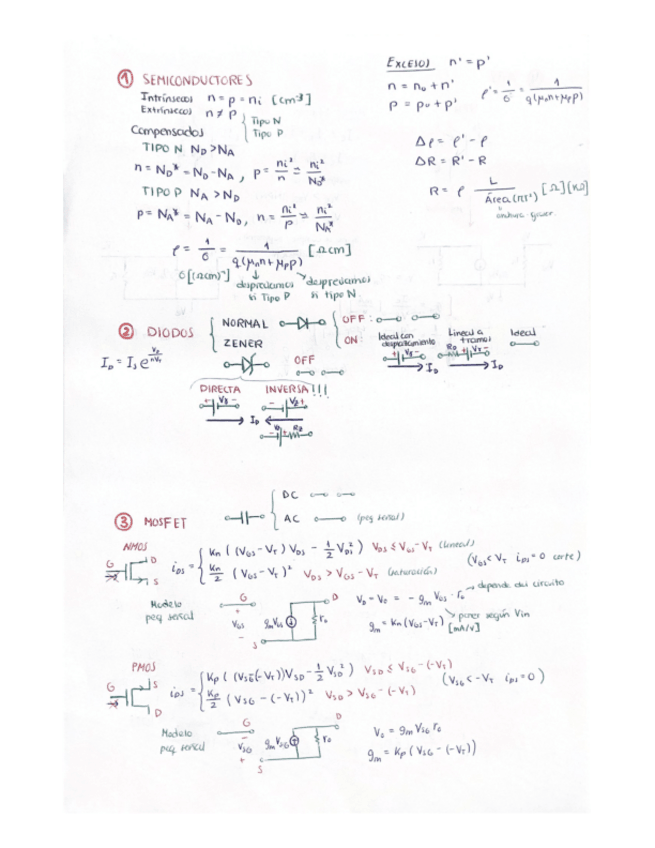 ① SEMICONDUCTORES
Intrínsecos n = p = ni [cm⁻³]
Extrínsecos n ≠ p { Tipo N
Tipo P
Compensados
TIPO N ND > NA
n = ND* = ND - NA , p = ni²/n = ni²/ND*
TIPO P NA > ND
p = NA* = NA - ND , n = ni²/p = ni²/NA*
ρ = 1/σ = 1/q(μnn + μpp) [Ωcm]
σ[(Ωcm)⁻¹] despreciamos si Tipo P despreciamos si tipo N
EXCESOS n' = p'
n = n₀ + n'
p = p₀ + p'
ρ' = 1/σ' = 1/q(μnn + μpp)
Δρ = ρ' - ρ
ΔR = R' - R
R = ρ L/Área(πr²) [Ω][kΩ]
② DIODOS { NORMAL
ZENER
OFF:
ON:
Ideal con desplazamiento
Lineal a tramos
Ideal
+ Vγ -
RD + Vγ -
ID ID
ID = IS e^(VD/nVT)
OFF
DIRECTA INVERSA!!!
+ Vγ - - VZ +
ID
③ MOSFET { DC
AC (peq señal)
NMOS
G D S
iDS = { Kn ((VGS - VT) VDS - 1/2 VDS²) VDS ≤ VGS - VT (lineal)
Kn/2 (VGS - VT)² VDS > VGS - VT (saturación)
(VGS < VT iDS = 0 corte)
Modelo peq señal
G D
VGS gmVGS r₀
S
= - gm VGS · r₀ → depende del circuito
gm = Kn(VGS - VT) [mA/V]
poner según Vin
PMOS
G S D
iDS = { Kp ((VSG - (-VT)) VSD - 1/2 VSD²) VSD ≤ VSG - (-VT)
Kp/2 (VSG - (-VT))² VSD > VSG - (-VT)
(VSG < -VT iDS = 0)
Modelo peq señal
G D
VSG gmVSG r₀
S
V₀ = gm VSG r₀
gm = Kp (VSG - (-VT))